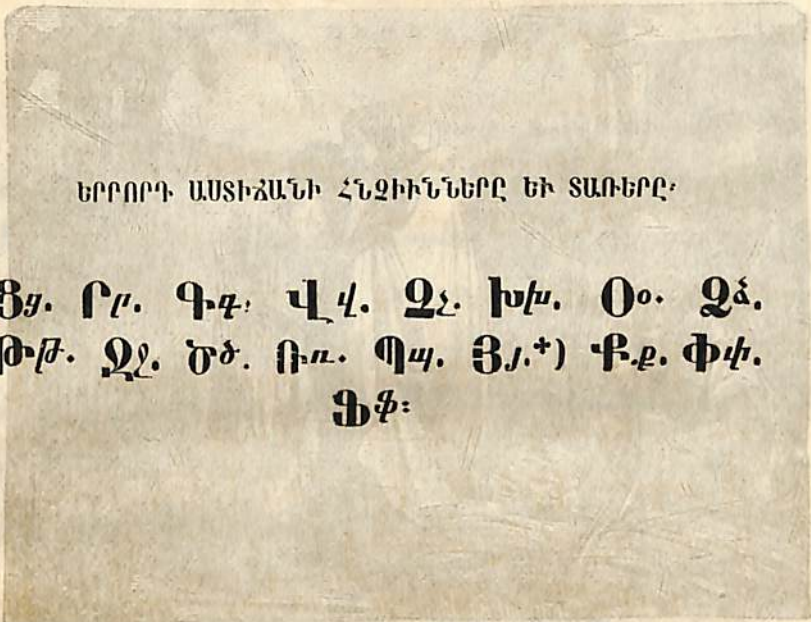 ԵՐՐՈՐԴ ԱՍՏԻՃԱՆԻ ՀՆՉԻԻՆՆԵՐԸ ԵԻ ՏԱՌԵՐԸ։
Ցց. Րր. Գգ. Վվ. Չչ. Խխ. Օօ. Ձձ.
Թթ. Ջջ. Ծծ. Ռռ. Պպ. Յյ.+) Քք. Փփ.
Ֆֆ։